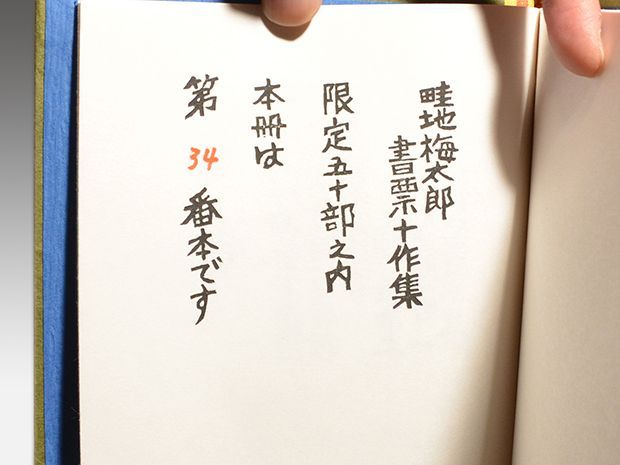 畦地梅太郎
書票十作集
限定五十部之内
本冊は
第34番本です